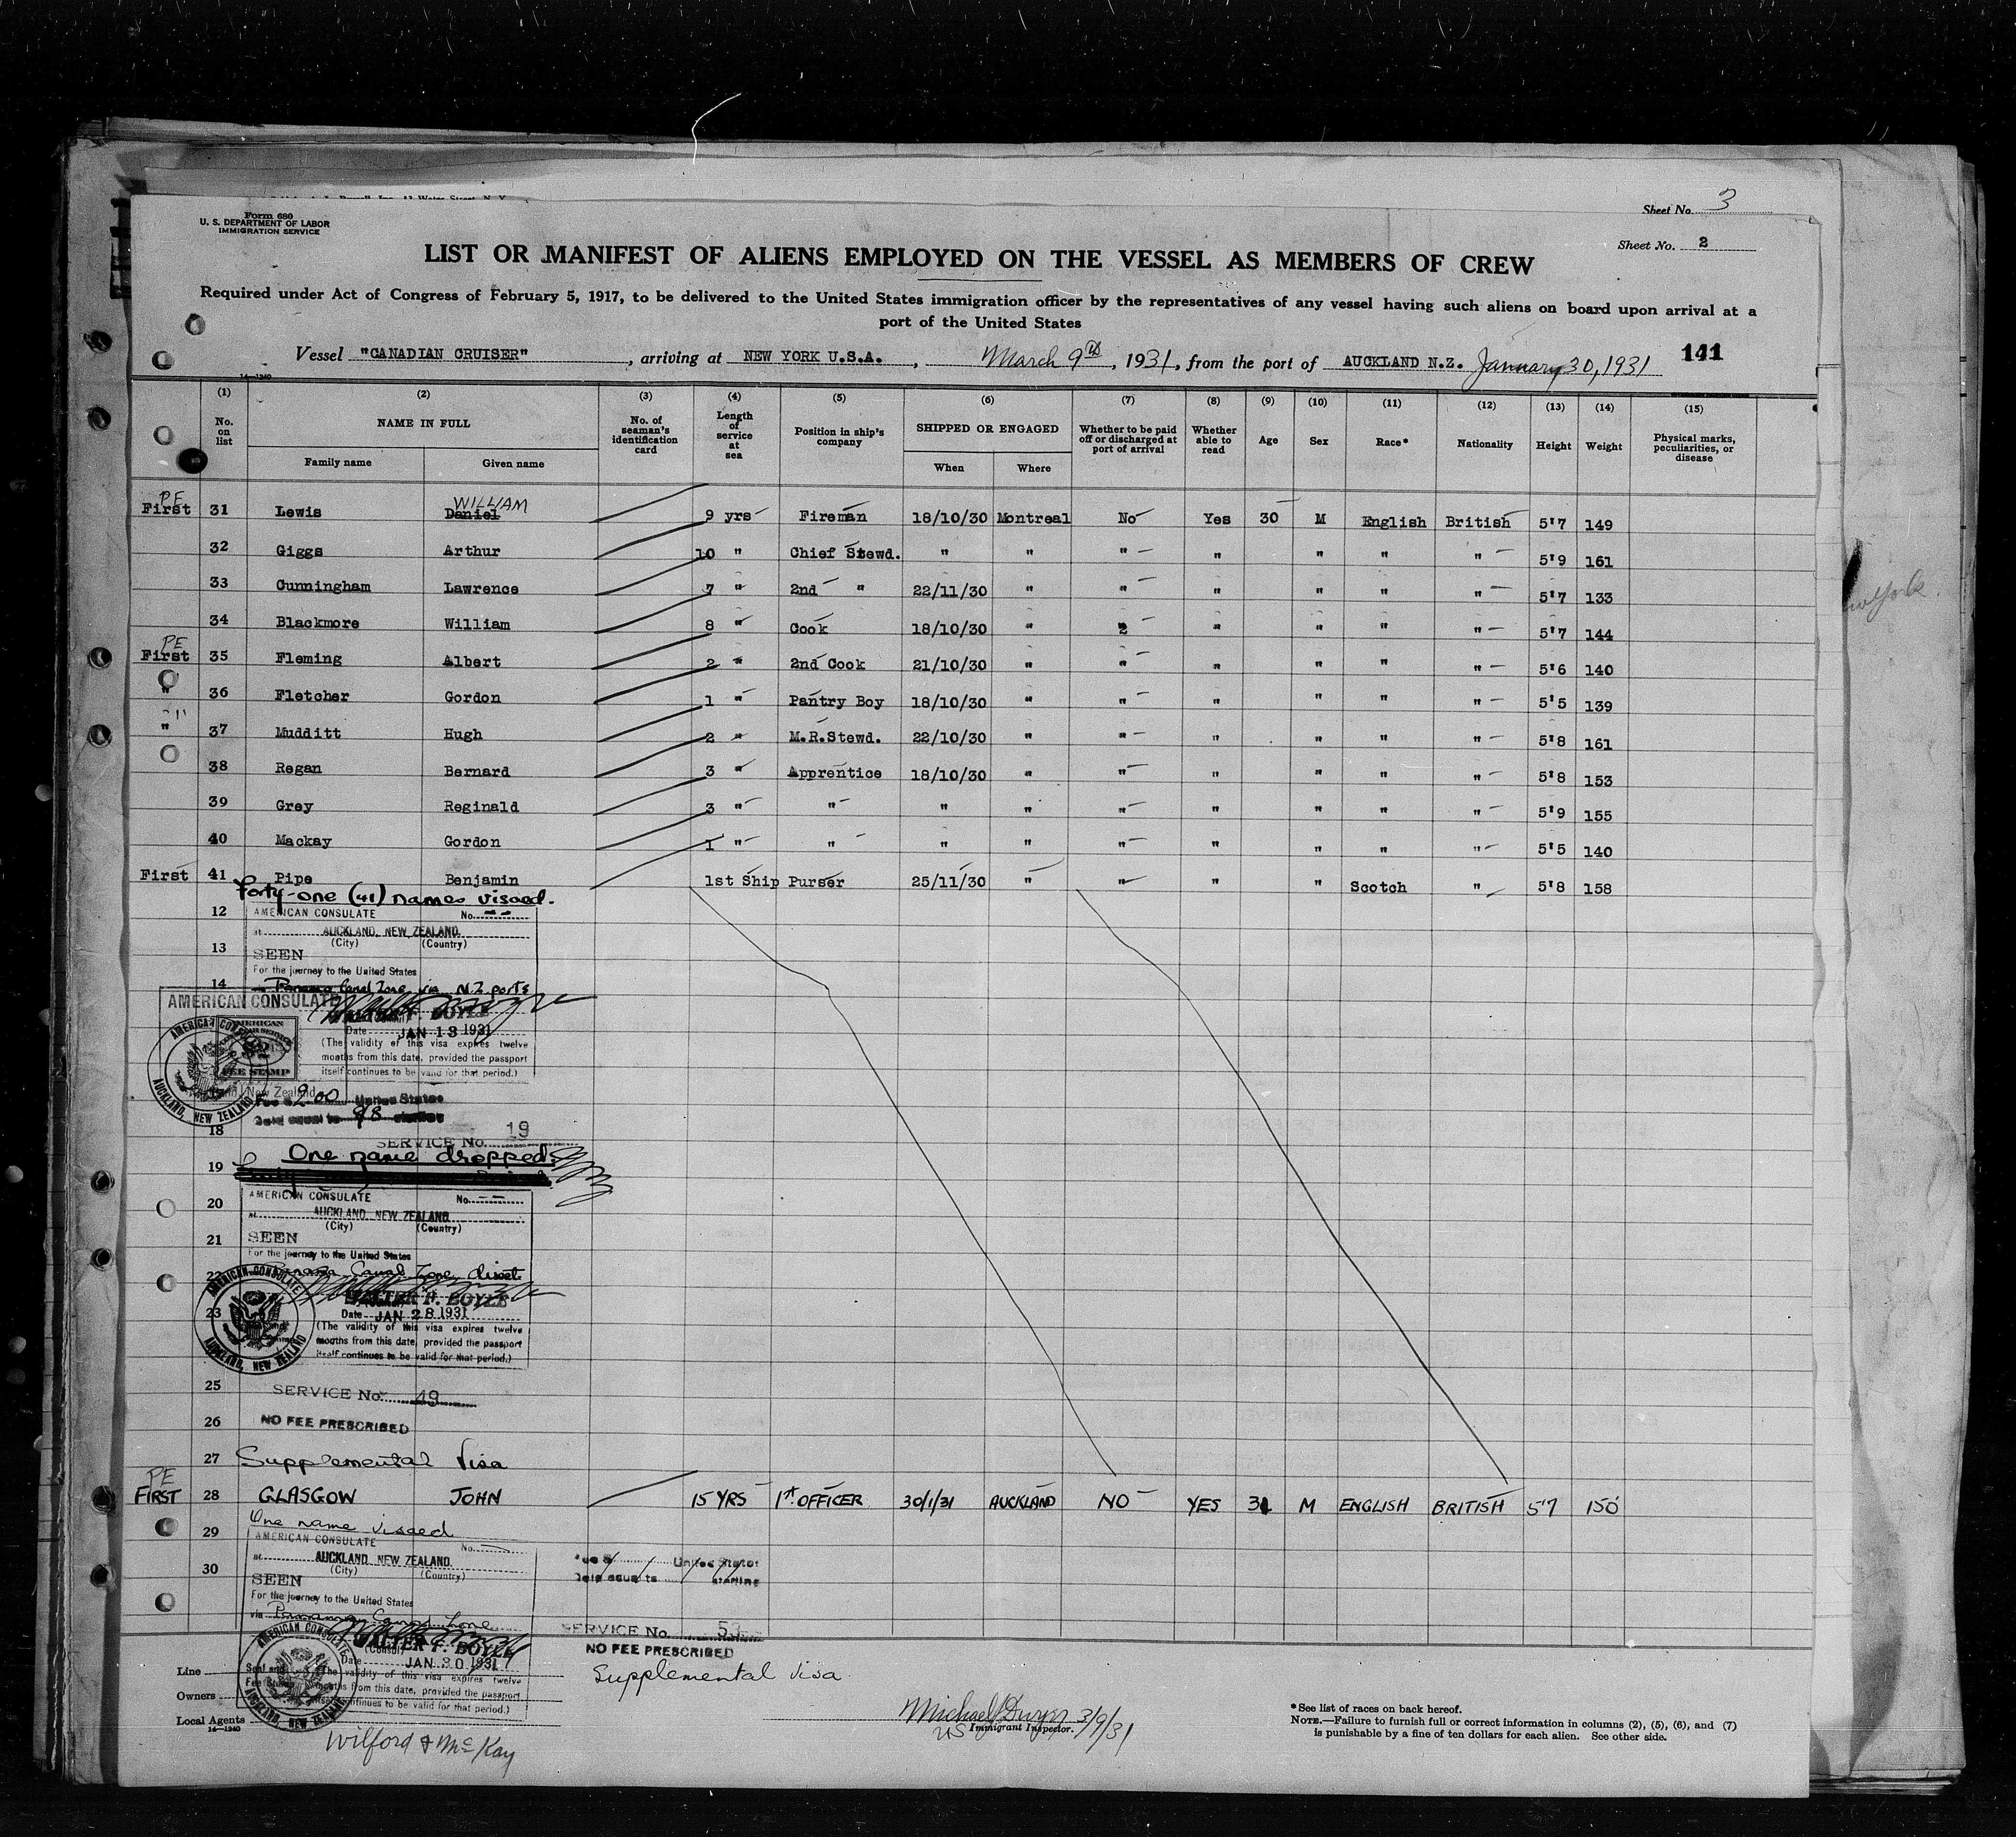 Form 680
U. S. DEPARTMENT OF LABOR
IMMIGRATION SERVICE
Sheet No. 3
Sheet No. 2
LIST OR MANIFEST OF ALIENS EMPLOYED ON THE VESSEL AS MEMBERS OF CREW
Required under Act of Congress of February 5, 1917, to be delivered to the United States immigration officer by the representatives of any vessel having such aliens on board upon arrival at a
port of the United States
Vessel "CANADIAN CRUISER", arriving at NEW YORK U.S.A., March 9th, 1931, from the port of AUCKLAND N.Z. January 30, 1931 141
14—1240
(1) (2) (3) (4) (5) (6) (7) (8) (9) (10) (11) (12) (13) (14) (15)
No. on list NAME IN FULL Family name Given name No. of seaman's identification card Length of service at sea Position in ship's company SHIPPED OR ENGAGED When Where Whether to be paid off or discharged at port of arrival Whether able to read Age Sex Race* Nationality Height Weight Physical marks, peculiarities, or disease
PE
WILLIAM
First 31 Lewis Daniel 9 yrs Fireman 18/10/30 Montreal No Yes 30 M English British 5'7 149
32 Giggs Arthur 10 " Chief Stewd. " " " " " " " 5'9 161
33 Cunningham Lawrence 7 " 2nd " 22/11/30 " " " " " " 5'7 133
34 Blackmore William 8 " Cook 18/10/30 " " " " " " 5'7 144
PE
First 35 Fleming Albert 2 " 2nd Cook 21/10/30 " " " " " " 5'6 140
" 36 Fletcher Gordon 1 " Pantry Boy 18/10/30 " " " " " " 5'5 139
" 37 Mudditt Hugh 2 " M.R.Stewd. 22/10/30 " " " " " " 5'8 161
38 Regan Bernard 3 " Apprentice 18/10/30 " " " " " " 5'8 153
39 Grey Reginald 3 " " " " " " " " " 5'9 155
40 Mackay Gordon 1 " " " " " " " " " 5'5 140
First 41 Pipe Benjamin 1st Ship Purser 25/11/30 " " " " Scotch " 5'8 158
Forty-one (41) names visaed.
12 AMERICAN CONSULATE No. --
at AUCKLAND, NEW ZEALAND.
(City) (Country)
13 SEEN
For the journey to the United States
14 Panama Canal Zone via N.Z ports
AMERICAN CONSULATE
F. BOYLE
Date JAN 13 1931
(The validity of this visa expires twelve
months from this date, provided the passport
itself continues to be valid for that period.)
AMERICAN CONSULATE
AUCKLAND, NEW ZEALAND
FEE STAMP
New Zealand
Fee $ 2.00 United States
Gold equal to 9/8 sterling
18
SERVICE No. 19
One name dropped
19
20 AMERICAN CONSULATE No. --
at AUCKLAND, NEW ZEALAND.
(City) (Country)
21 SEEN
For the journey to the United States
22 Panama Canal Zone direct
AMERICAN CONSULATE
AUCKLAND, NEW ZEALAND
WALTER F. BOYLE
23 Date JAN 28 1931
(The validity of this visa expires twelve
months from this date, provided the passport
itself continues to be valid for that period.)
25 SERVICE No. 49
26 NO FEE PRESCRIBED
27 Supplemental Visa
PE
FIRST 28 GLASGOW JOHN 15 YRS 1st OFFICER 30/1/31 AUCKLAND NO YES 31 M ENGLISH BRITISH 5'7 150
One name visaed
29 AMERICAN CONSULATE No.
at AUCKLAND, NEW ZEALAND.
(City) (Country)
30 SEEN
For the journey to the United States
via Panama Canal Zone
Fee $ United States
Gold equal to sterling
AMERICAN CONSULATE
AUCKLAND, NEW ZEALAND
WALTER F. BOYLE
(Consul)
Date JAN 30 1931
(The validity of this visa expires twelve
months from this date, provided the passport
itself continues to be valid for that period.)
SERVICE No. 53
NO FEE PRESCRIBED
Supplemental Visa
Line
Owners
Local Agents
14—1240
Wilford & McKay
Michael Dwyer 3/9/31
US Immigrant Inspector.
*See list of races on back hereof.
NOTE.—Failure to furnish full or correct information in columns (2), (5), (6), and (7)
is punishable by a fine of ten dollars for each alien. See other side.